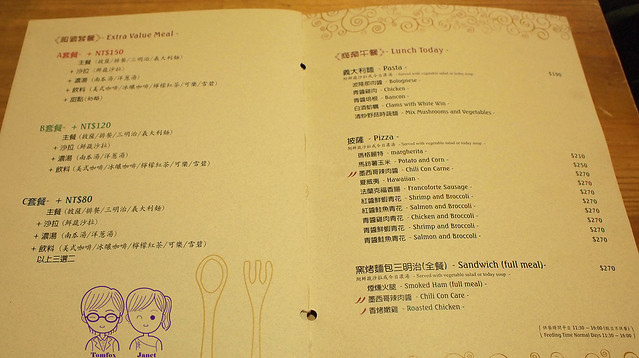 超值套餐 - Extra Value Meal -
A套餐- + NT$150
主餐 (披薩/排餐/三明治/義大利麵)
+ 沙拉 (鮮蔬沙拉)
+ 濃湯 (南瓜湯/洋蔥湯)
+ 飲料 (美式咖啡/冰釀咖啡/檸檬紅茶/可樂/雪碧)
+ 甜點
B套餐- + NT$120
主餐 (披薩/排餐/三明治/義大利麵)
+ 沙拉 (鮮蔬沙拉)
+ 濃湯 (南瓜湯/洋蔥湯)
+ 飲料 (美式咖啡/冰釀咖啡/檸檬紅茶/可樂/雪碧)
C套餐- + NT$80
主餐 (披薩/排餐/三明治/義大利麵)
+ 沙拉 (鮮蔬沙拉)
+ 濃湯 (南瓜湯/洋蔥湯)
+ 飲料 (美式咖啡/冰釀咖啡/檸檬紅茶/可樂/雪碧)
以上三選二
Tomfox Janet
午餐 - Lunch Today -
義大利麵 - Pasta -
附鮮蔬沙拉或今日濃湯 - Served with vegetable salad or today soup -
波隆那肉醬 - Bolognese -
青醬雞肉 - Chicken -
青醬培根 - Bancon -
白酒蛤蠣 - Clams with White Win -
清炒野菇時蔬麵 - Mix Mushrooms and Vegetables -
披薩 - Pizza -
附鮮蔬沙拉或今日濃湯 - Served with vegetable salad or today soup -
瑪格麗特 - margherita - $210
馬鈴薯玉米 - Potato and Corn - $250
墨西哥辣肉醬 - Chili Con Carne - $250
夏威夷 - Hawaiian - $270
法蘭克福香腸 - Francoforte Sausage - $270
紅醬鮮蝦青花 - Shrimp and Broccoli - $270
紅醬鮭魚青花 - Salmon and Broccoli - $270
青醬雞肉青花 - Chicken and Broccoli - $270
青醬鮮蝦青花 - Shrimp and Broccoli - $270
青醬鮭魚青花 - Salmon and Broccoli - $270
窯烤麵包三明治(全餐) - Sandwich (full meal)- $270
附鮮蔬沙拉或今日濃湯 - Served with vegetable salad or today soup -
煙燻火腿 - Smoked Ham (full meal) -
墨西哥辣肉醬 - Chili Con Care -
香烤嫩雞 - Roasted Chicken -
Feeding Time Normal Days 11:30 ~ 14:00